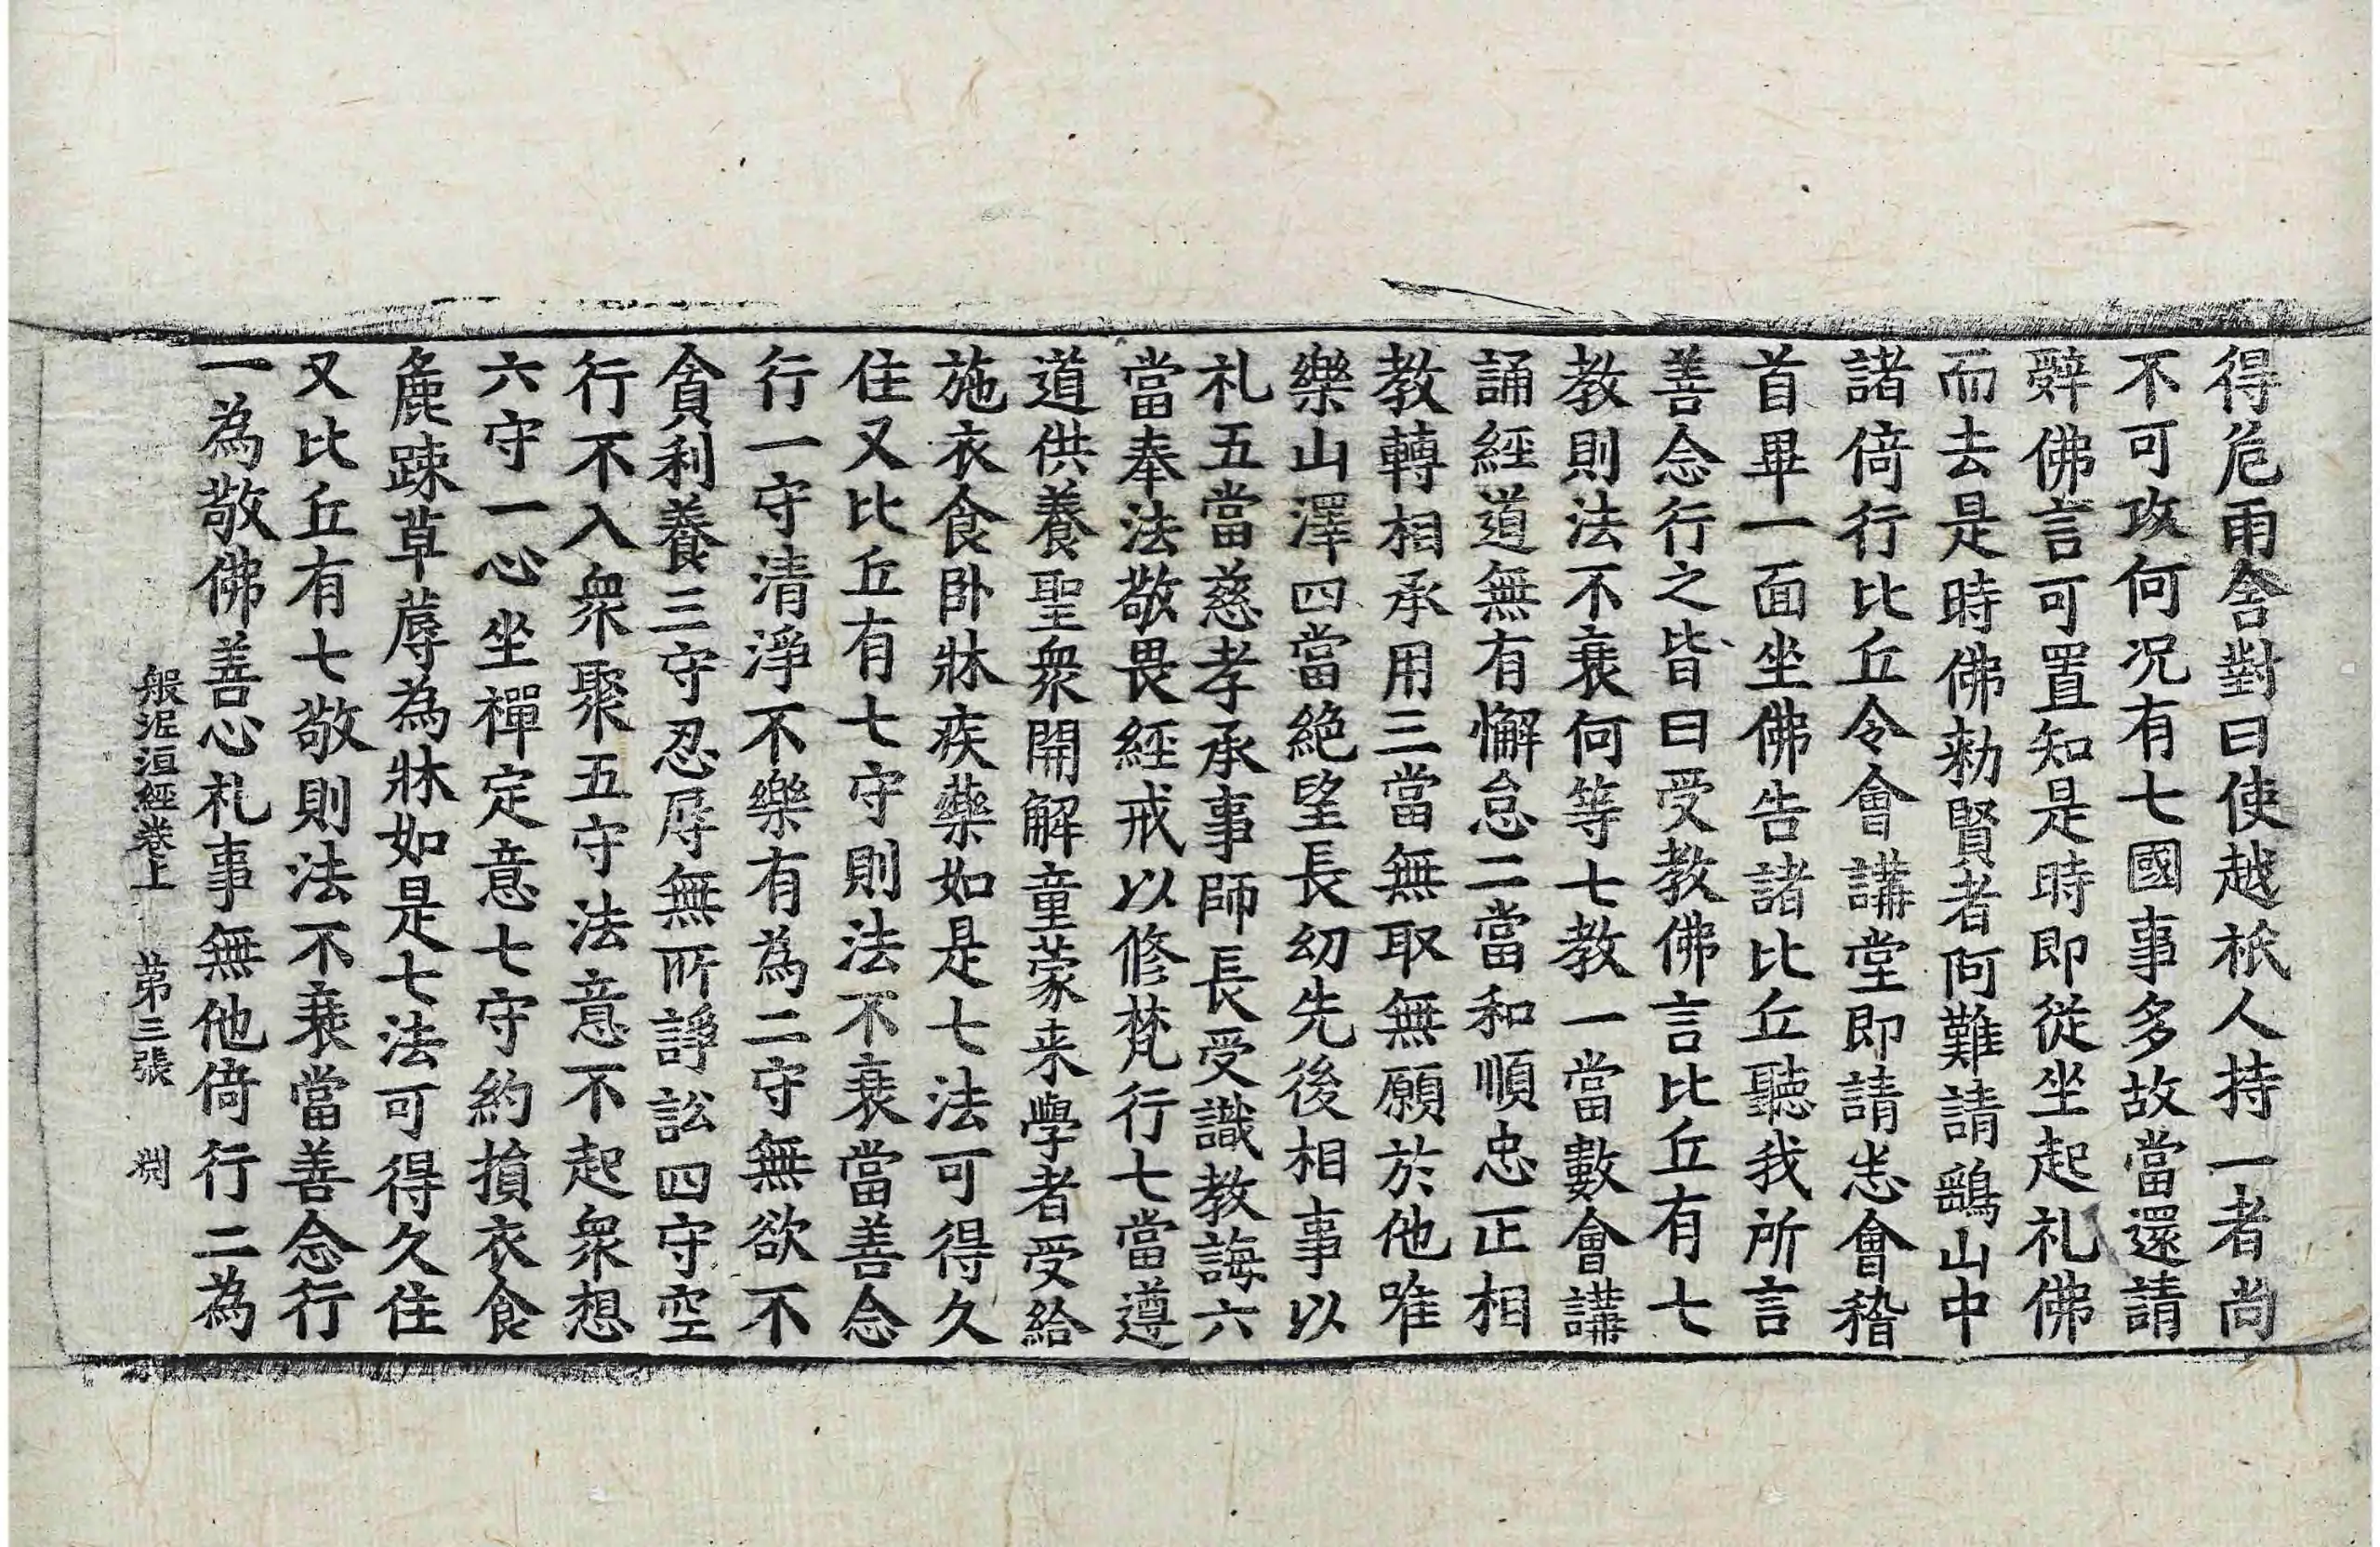 得危雨舍對曰使越祇人持一者尚
不可攻何況有七國事多故當還請
辤佛言可置知是時即從坐起礼佛
而去是時佛勑賢者阿難請鷂山中
諸倚行比丘令會講堂即請悉會稽
首畢一面坐佛告諸比丘聽我所言
善念行之皆曰受教佛言比丘有七
教則法不衰何等七教一當數會講
誦經道無有懈怠二當和順忠正相
教轉相承用三當無取無願於他唯
樂山澤四當絶望長幼先後相事以
礼五當慈孝承事師長受識教誨六
當奉法敬畏經戒以修梵行七當遵
道供養聖衆開解童蒙来學者受給
施衣食卧牀疾藥如是七法可得久
住又比丘有七守則法不衰當善念
行一守清淨不樂有為二守無欲不
貪利養三守忍辱無所諍訟四守空
行不入衆聚五守法意不起衆想
六守一心坐禪定意七守約損衣食
麁踈草蓐為牀如是七法可得久住
又比丘有七敬則法不衰當善念行
一為敬佛善心礼事無他倚行二為
般泥洹經卷上 第三張